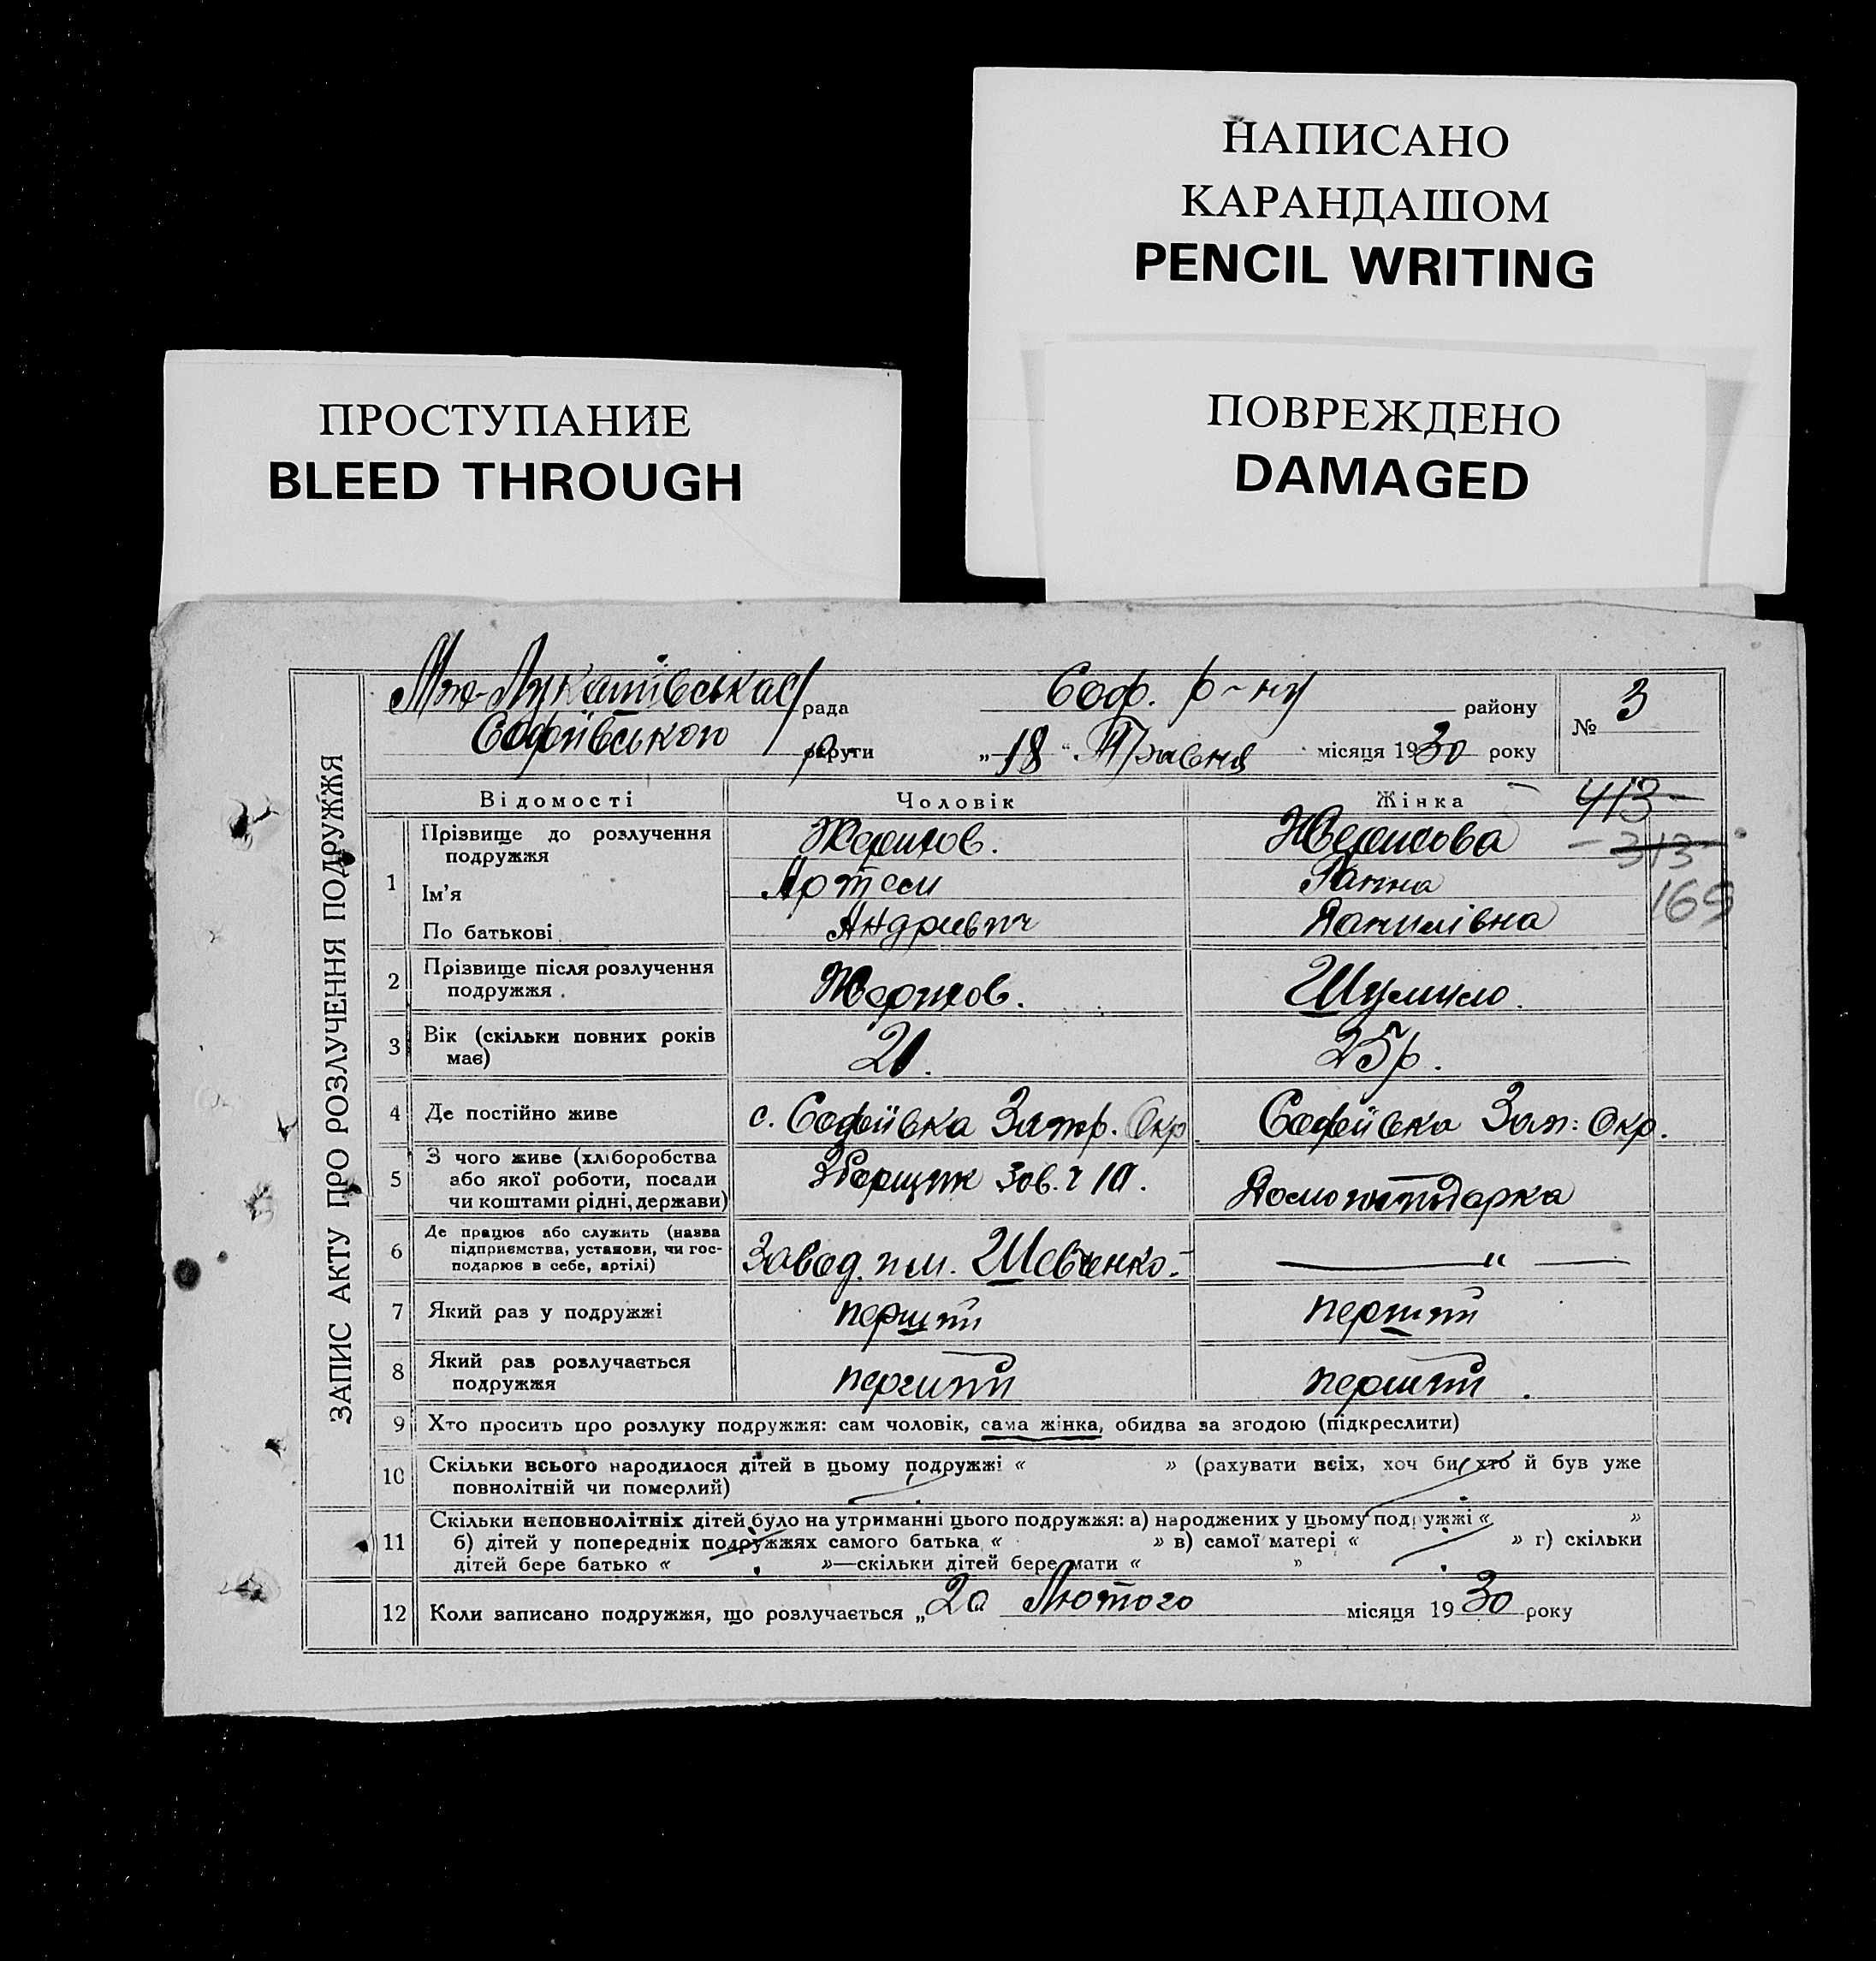 НАПИСАНО
КАРАНДАШОМ
PENCIL WRITING
ПРОСТУПАНИЕ
BLEED THROUGH
ПОВРЕЖДЕНО
DAMAGED
ЗАПИС АКТУ ПРО РОЗЛУЧЕННЯ ПОДРУЖЖЯ
рада Соф. р-ну району
№ 3
Софіївського округи „18“ Травня місяця 1930 року
Відомості Чоловік Жінка
413
313
169
1 Прізвище до розлучення
подружжя
Ім'я Артем Ганна
По батькові Андриевич Данилівна
2 Прізвище після розлучення
подружжя Шумило.
3 Вік (скільки повних років
має) 21. 25р.
4 Де постійно живе с. Софиївка Запор. Окр Софиївка Зап: Окр.
5 З чого живе (хліборобства
або якої роботи, посади
чи коштами рідні, держави)
Зборщик зов. Домогосподарка
6 Де працює або служить (назва
підприємства, установи, чи гос-
подарює в себе, артілі)
Завод. им. Шевченко. — „ —
7 Який раз у подружжі перший перший
8 Який раз розлучається
подружжя перший перший.
9 Хто просить про розлуку подружжя: сам чоловік, сама жінка, обидва за згодою (підкреслити)
10 Скільки всього народилося дітей в цьому подружжі « » (рахувати всіх, хоч би хто й був уже
повнолітній чи померлий)
11 Скільки неповнолітніх дітей було на утриманні цього подружжя: а) народжених у цьому подружжі « »
б) дітей у попередніх подружжях самого батька « » в) самої матері « » г) скільки
дітей бере батько « »—скільки дітей бере мати « »
12 Коли записано подружжя, що розлучається „20 Лютого місяця 1930 року